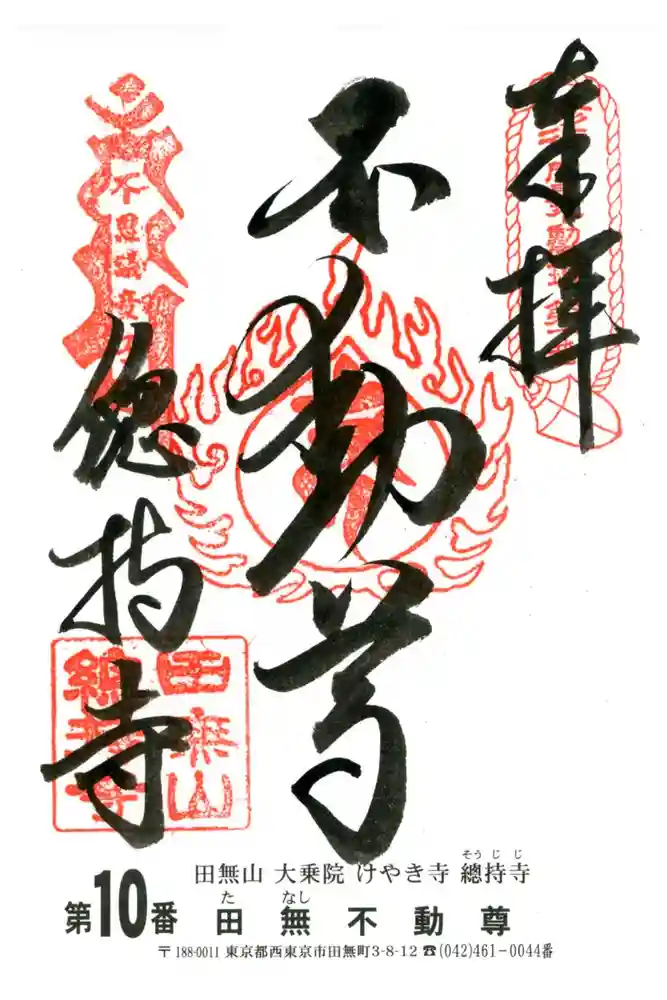 奉拝
不動尊
總持寺
不思議
田無山
總持寺
田無山 大乗院 けやき寺 總持寺
そうじじ
第10番 田無不動尊
た なし
〒188-0011 東京都西東京市田無町3-8-12 ☎(042)461-0044番